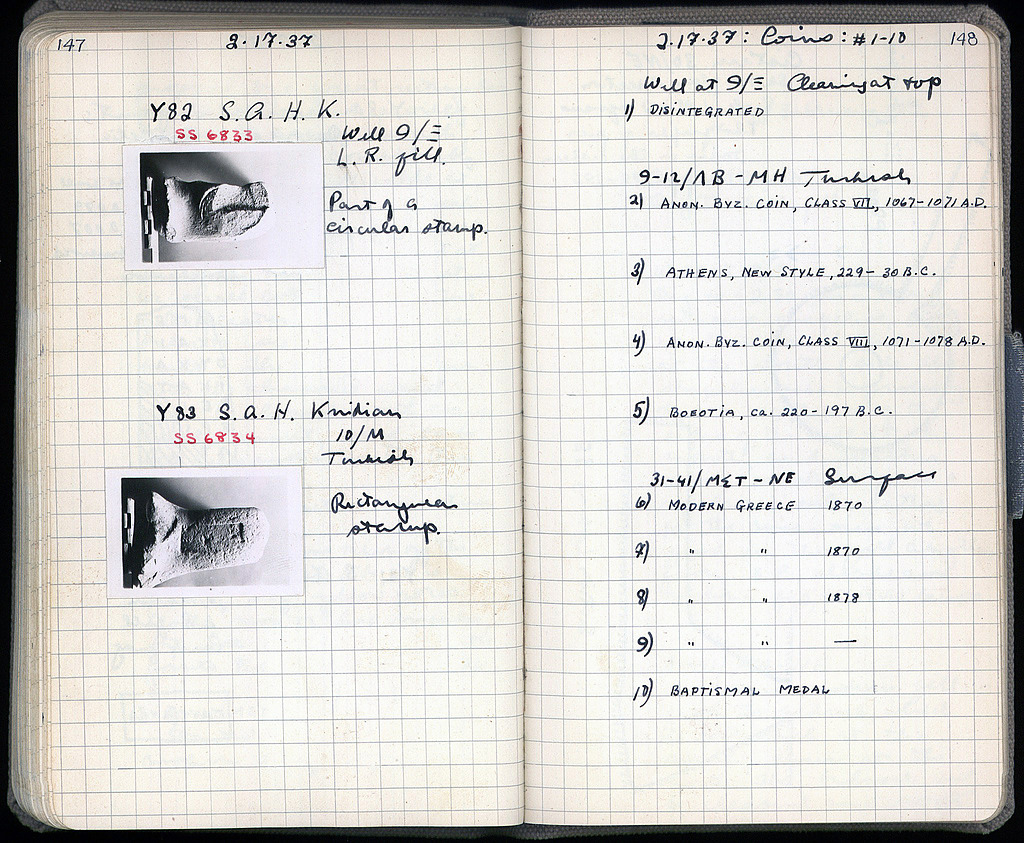 147
2·17·37
Y82 S. A. H. K.
SS 6833
Well 9/Ξ
L. R. fill.
Part of a
circular stamp.
Y83 S. A. H. Knidian
SS 6834
10/M
Turkish
Rectangular
stamp.
2.17.37: Coins: #1-10
148
Well at 9/Ξ Cleaning at top
1) DISINTEGRATED
9-12/ΛB - MH Turkish
2) ANON. BYZ. COIN, CLASS VII, 1067-1071 A.D.
3) ATHENS, NEW STYLE, 229- 30 B.C.
4) ANON. BYZ. COIN, CLASS VIII, 1071-1078 A.D.
5) BOEOTIA, ca. 220-197 B.C.
31-41/MΣT - NE Surface
6) MODERN GREECE 1870
7) " " 1870
8) " " 1878
9) " " —
10) BAPTISMAL MEDAL